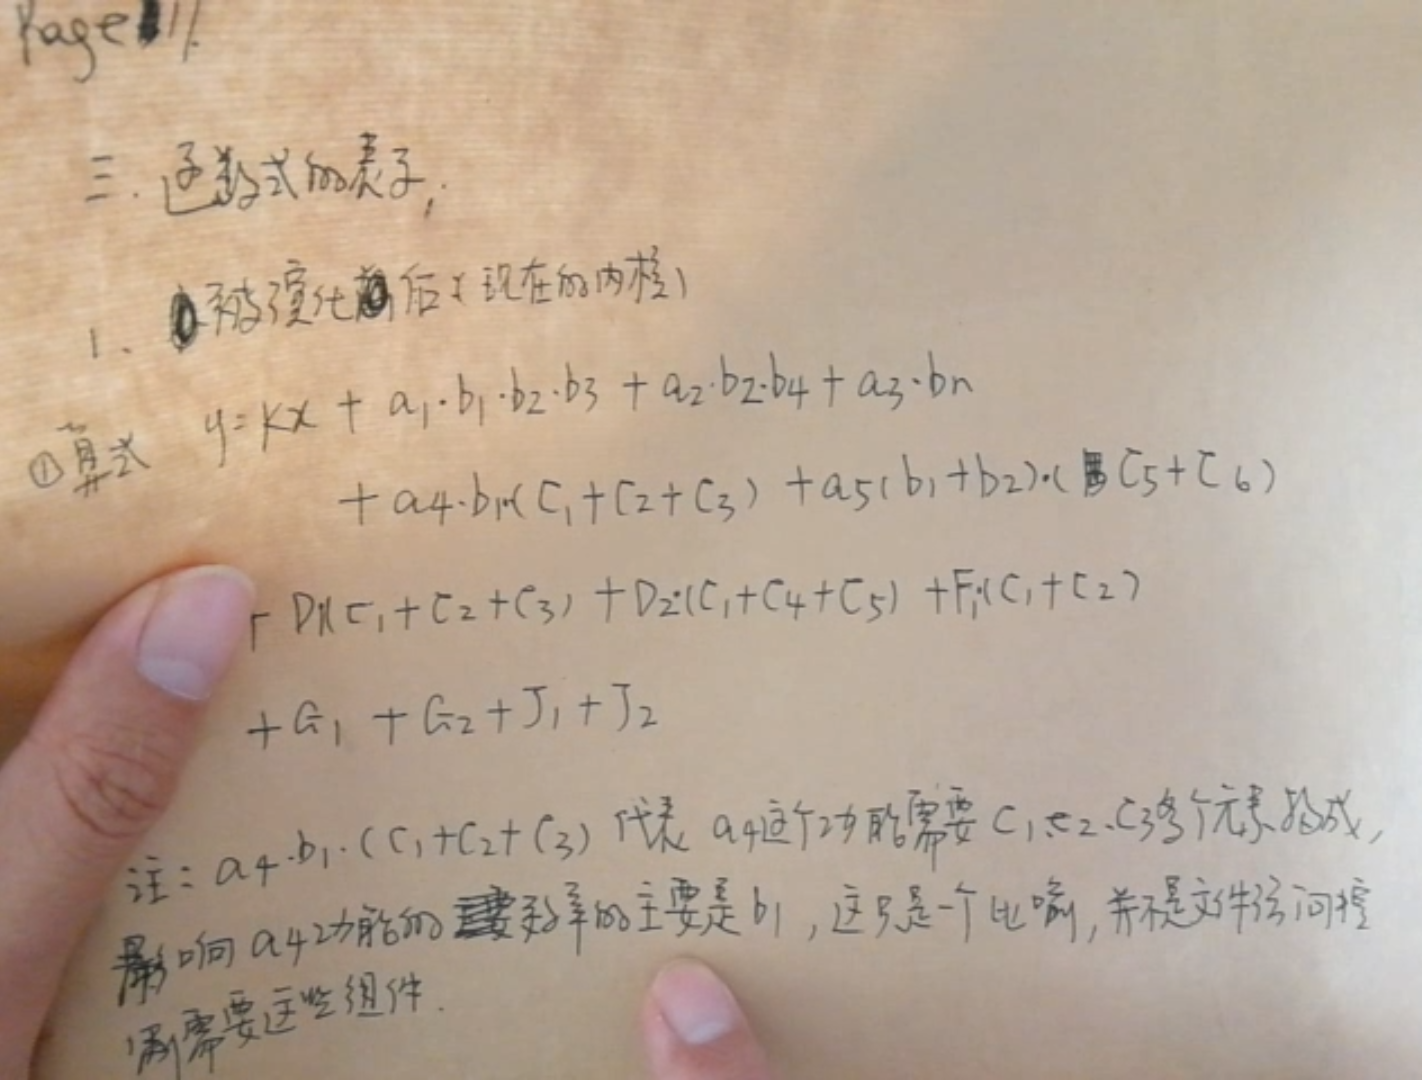 Page 11.
三. 函数式的表示;
1. 被演化后(现在的内核)
①算式 y=kx + a₁·b₁·b₂·b₃ + a₂·b₂·b₄ + a₃·bn
+ a₄·b₁·(C₁+C₂+C₃) + a₅(b₁+b₂)·(C₅+C₆)
+ D₁(C₁+C₂+C₃) + D₂·(C₁+C₄+C₅) + F₁·(C₁+C₂)
+ G₁ + G₂ + J₁ + J₂
注: a₄·b₁·(C₁+C₂+C₃) 代表 a₄这个功能需要 C₁、C₂、C₃多个元素构成,
影响a₄功能的效率的主要是b₁,这只是一个比喻,并不是文件访问控
制需要这些组件.